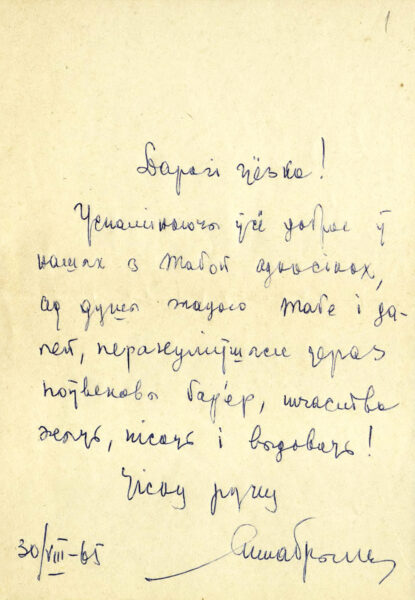 1
Дарагі цёзка!
Успамінаючы ўсё добрае ў
нашых з Табой адносінах,
ад душы жадаю Табе і да-
лей, перакуліўшыся цераз
паўвекавы бар'ер, шчасліва
жыць, пісаць і выдаваць!
Ціскаю руку
30/VIII-65